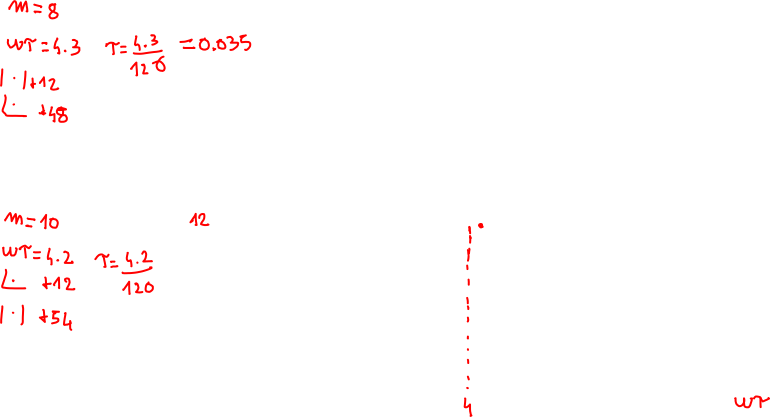 m=8
ωτ=4.3 τ=4.3/120 =0.035
|·|+12
∠· +48
m=10 12
ωτ=4.2 τ=4.2/120
∠· +12
|·| +54
4 ωτ